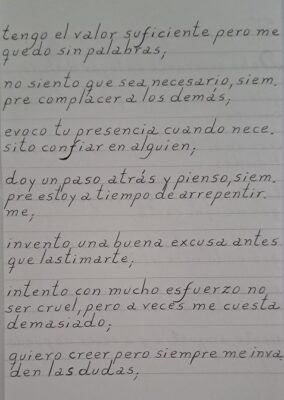 tengo el valor suficiente pero me
quedo sin palabras;
no siento que sea necesario, siem.
pre complacer a los demás;
evoco tu presencia cuando nece.
sito confiar en alguien;
doy un paso atrás y pienso, siem.
pre estoy a tiempo de arrepentir.
me;
invento una buena excusa antes
que lastimarte;
intento con mucho esfuerzo no
ser cruel, pero a veces me cuesta
demasiado;
quiero creer pero siempre me inva.
den las dudas;